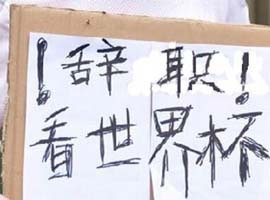 !辞职!
看世界杯